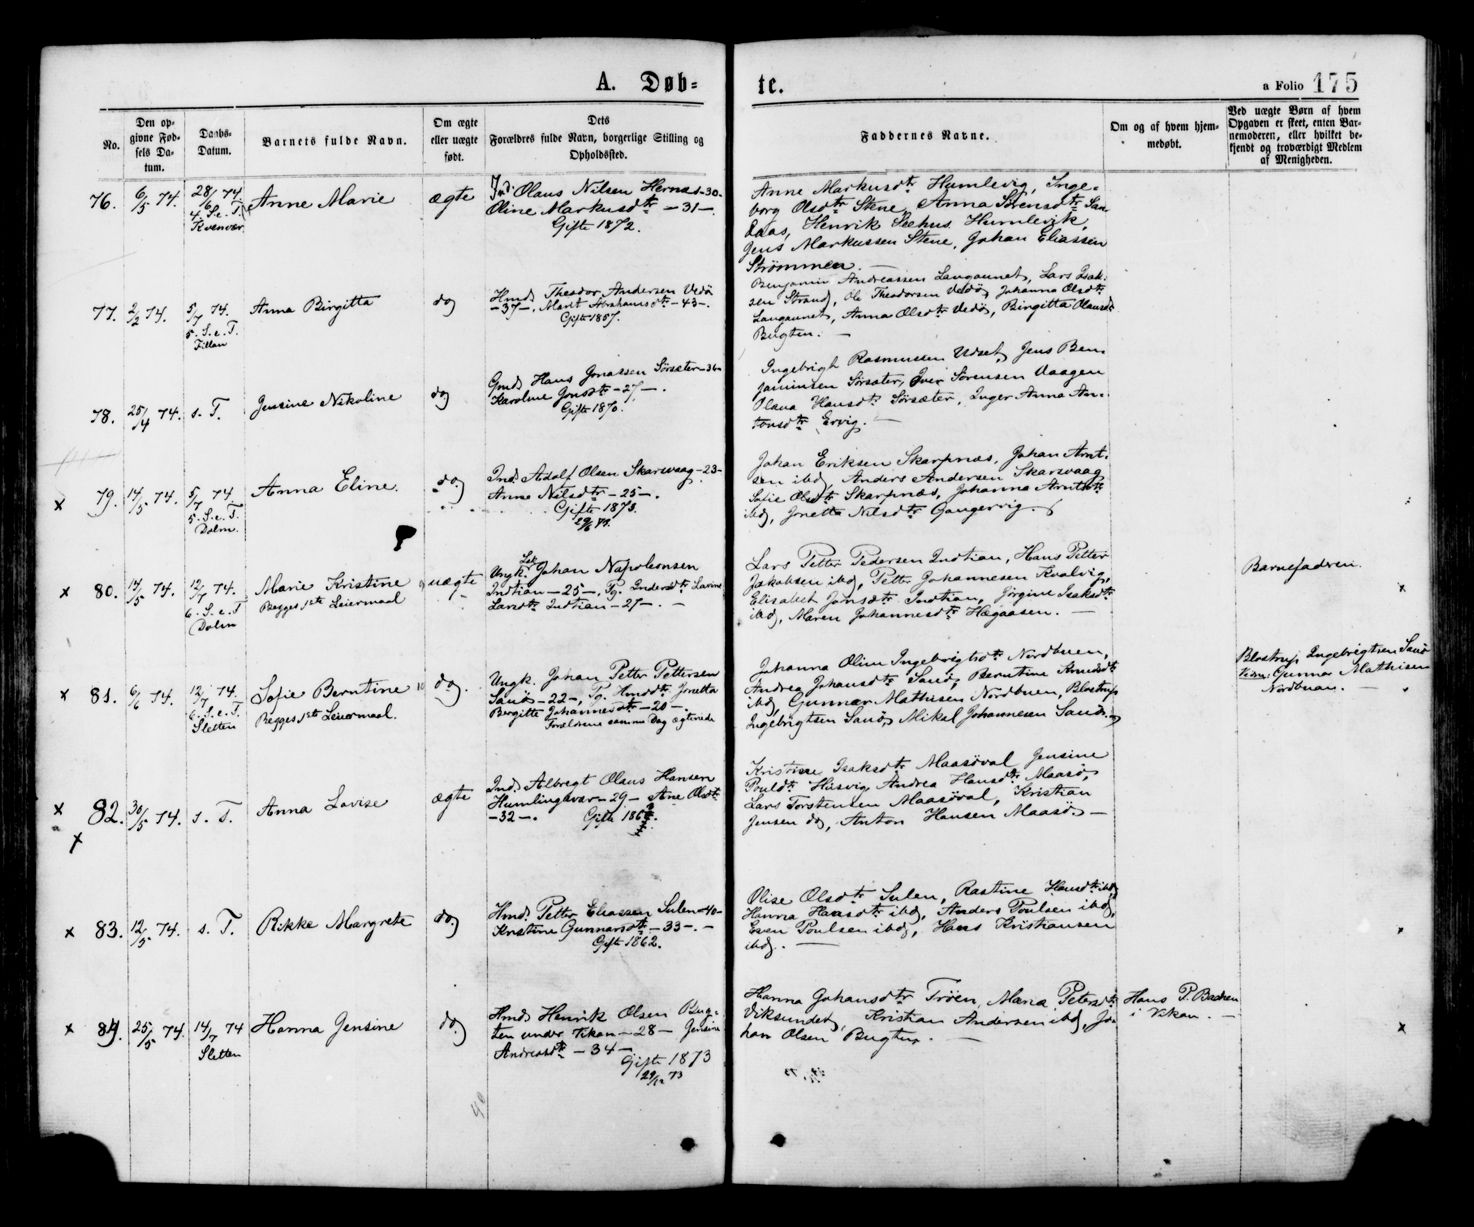 A. Døb-
te.
a Folio 175
No.
Den op-
givne Fød-
sels Da-
tum.
Daabs-
Datum.
Barnets fulde Navn.
Om ægte
eller uægte
født.
Dets
Forældres fulde Navn, borgerlige Stilling og
Opholdssted.
Faddernes Navne.
Om og af hvem hjem-
medøbt.
Ved uægte Børn af hvem
Opgaven er skeet, enten Bar-
nemoderen, eller hvilket be-
kjendt og troværdigt Medlem
af Menigheden.
76. 6/5 74. 28/6 74.
4. S. e. T.
Kvenvær
Anne Marie
ægte
Ind. Olaus Nilsen Hernæs -30-
Oline Markusdtr -31-.
Gifte 1872.
Anne Markusdtr Humlevig, Inge-
borg Olsdtr Stene, Anna Sørensdtr San-
daas, Henrik Humlevik,
Jens Markussen Stene, Johan Eliassen
Strømmen. —
77. 2/2 74. 5/7 74.
5. S. e. T.
Fillan
Anna Birgitta
do
Hmd. Theodor Andersen Vedø
-37-, Marit Abrahamsdtr -43-.
Gifte 1857.
Benjamin Andreassen Langaunet, Lars Isak-
sen Strand, Ole Theodorsen Vedø, Johanna Olsdtr
Langaunet, Anna Olsdtr Vedø, Birgitta Olausdtr
Bugten. —
78. 25/4 74. s. T.
Jensine Nikoline
do
Gmd. Hans Jonassen Sørsæter -36-
Karoline Jonsdtr -27-.
Gifte 1870.
Ingebrigt Rasmussen Udset, Jens Ben-
jaminsen Sørsæter, Iver Sørensen Vaagen
Olava Hansdtr Sørsæter, Inger Anna An-
tonsdtr Ervig. —
x 79. 14/5 74. 5/7 74.
5. S. e. T.
Dolm
Anna Eline
do
Ind. Adolf Olsen Skarsvaag -23-
Anne Nilsdtr -25-.
Gifte 1873.
Johan Eriksen Skarpnæs, Johan Arnt-
sen ibd, Anders Andersen Skarsvaag
Sofie Olsdtr Skarpnæs, Johanna Arntsdtr
ibd, Jonetta Nilsdtr Gangervig.
x 80. 14/5 74. 12/7 74.
6. S. e. T
Dolm
Marie Kristine
Begges 1ste Leiermaal
uægte
Ungk. Johan Napoleonsen
Indtian -25-, Pg. Lavine
Larsdtr Indtian -27-. —
Lars Petter Pedersen Indtian, Hans Petter
Jakobsen ibd, Petter Johannesen Kvalvig,
Elisabet Jonsdtr Indtian, Jørgine Isaksdtr
ibd, Maren Johannesdtr Hægaasen. —
Barnefaderen.
x
x 81. 6/6 74. 12/7 74.
6. S. e. T.
Sletten
Sofie Berntine
Begges 1ste Leiermaal.
do.
Ungk. Johan Petter Pettersen
Sanø -22-, Pg. Hmdsdtr Jonetta
Birgitte Johannesdtr -20-.
Forældrene samme Dag ægteviede
Johanna Oline Ingebrigtsdtr Nordbuen,
Andrea Johansdtr Sanø, Berntine Arnesdtr
ibd, Gunnar Mathisen Nordbuen, Blostrup
Ingebrigtsen Sanø, Mikal Johannesen Sandvig
Blostrup Ingebrigtsen Sanø
Gunnar Mathisen
Nordbuen. —
x 82. 30/5 74. s. T.
Anna Lovise
ægte
Ind. Albregt Olaus Hansen
Humlingsvær -29- Ane Olsdtr
-32-. Gifte
Kristine Isaksdtr Maasøval, Jensine
Pouldtr Husvig, Andrea Hansdtr Maasø,
Lars Torstensen Maasøval, Kristian
Jensen do, Anton Hansen Maasø. —
x 83. 12/5 74. s. T.
Rikke Margrete
do
Hmd. Petter Eliassen Sulen -40-
Kristine Gunnarsdtr -33-. —
Gifte 1862.
Olise Olsdtr Sulen, Rastine Hansdtr ibd,
Hanna Hansdtr ibd, Anders Poulsen ibd,
Even Poulsen ibd, Hans Kristiansen
ibd. —
x 84. 25/5 74. 14/7 74
Sletten
Hanna Jensine
do
Hmd. Henrik Olsen Bug-
ten under Vikan -28- Jensine
Andreasdtr -34-
Gifte 1873
29/12 73
Hanna Johansdtr Trøen, Maria Petersdtr
Viksundet, Kristian Andersen ibd, Jo-
han Olsen Bugten. —
Hans P. Bachen
i Vikan. —
x
40